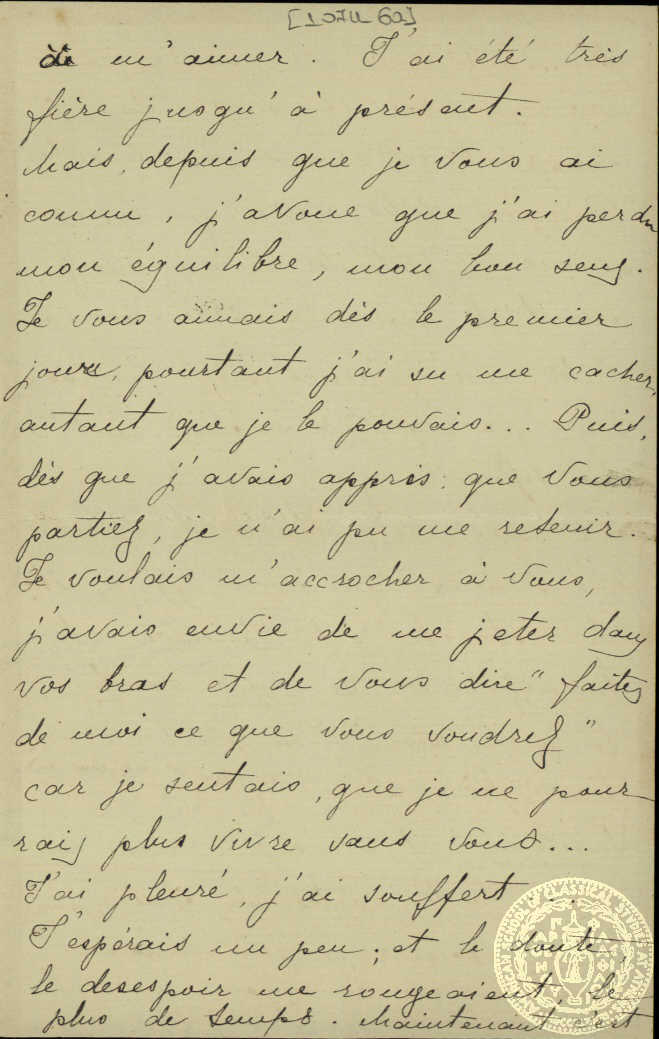 [1 ΟΤΙΙ 62]
de m'aimer. J'ai été très
fière jusqu'à présent.
Mais, depuis que je vous ai
connu, j'avoue que j'ai perdu
mon équilibre, mon bon sens.
Je vous aimais dès le premier
jour, pourtant j'ai su me cacher,
autant que je le pouvais... Puis,
dès que j'avais appris, que vous
partiez, je n'ai pu me retenir.
Je voulais m'accrocher à vous,
j'avais envie de me jeter dans
vos bras et de vous dire " faites
de moi ce que vous voudrez "
car je sentais, que je ne pour-
rais plus vivre sans vous...
J'ai pleuré, j'ai souffert ...
J'espérais un peu ; et le doute,
le desespoir me rongeaient, le
plus de temps. Maintenant c'est
AMERICAN SCHOOL OF CLASSICAL STUDIES AT ATHENS